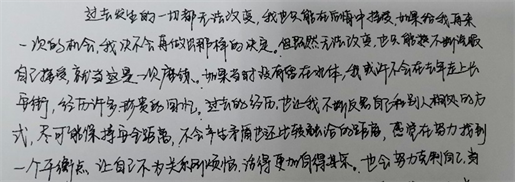 过去发生的一切都无法改变,我也只能在后悔中接受,如果给我再来
一次的机会,我决不会再做出那样的决定。但既然无法改变,也只能不断说服
自己接受,就当这是一次磨练。如果当时没有留在水体,我或许不会在去年走上长
历许多珍贵的回忆。过去的经历,也让我不断反思自己和别人相处的方
式,尽可能保持安全距离,不会产生矛盾也还比较融洽的距离,感觉在努力找到
一个平衡点,让自己不为关系则烦恼,活得更加自得其乐。也会努力克制自己,当